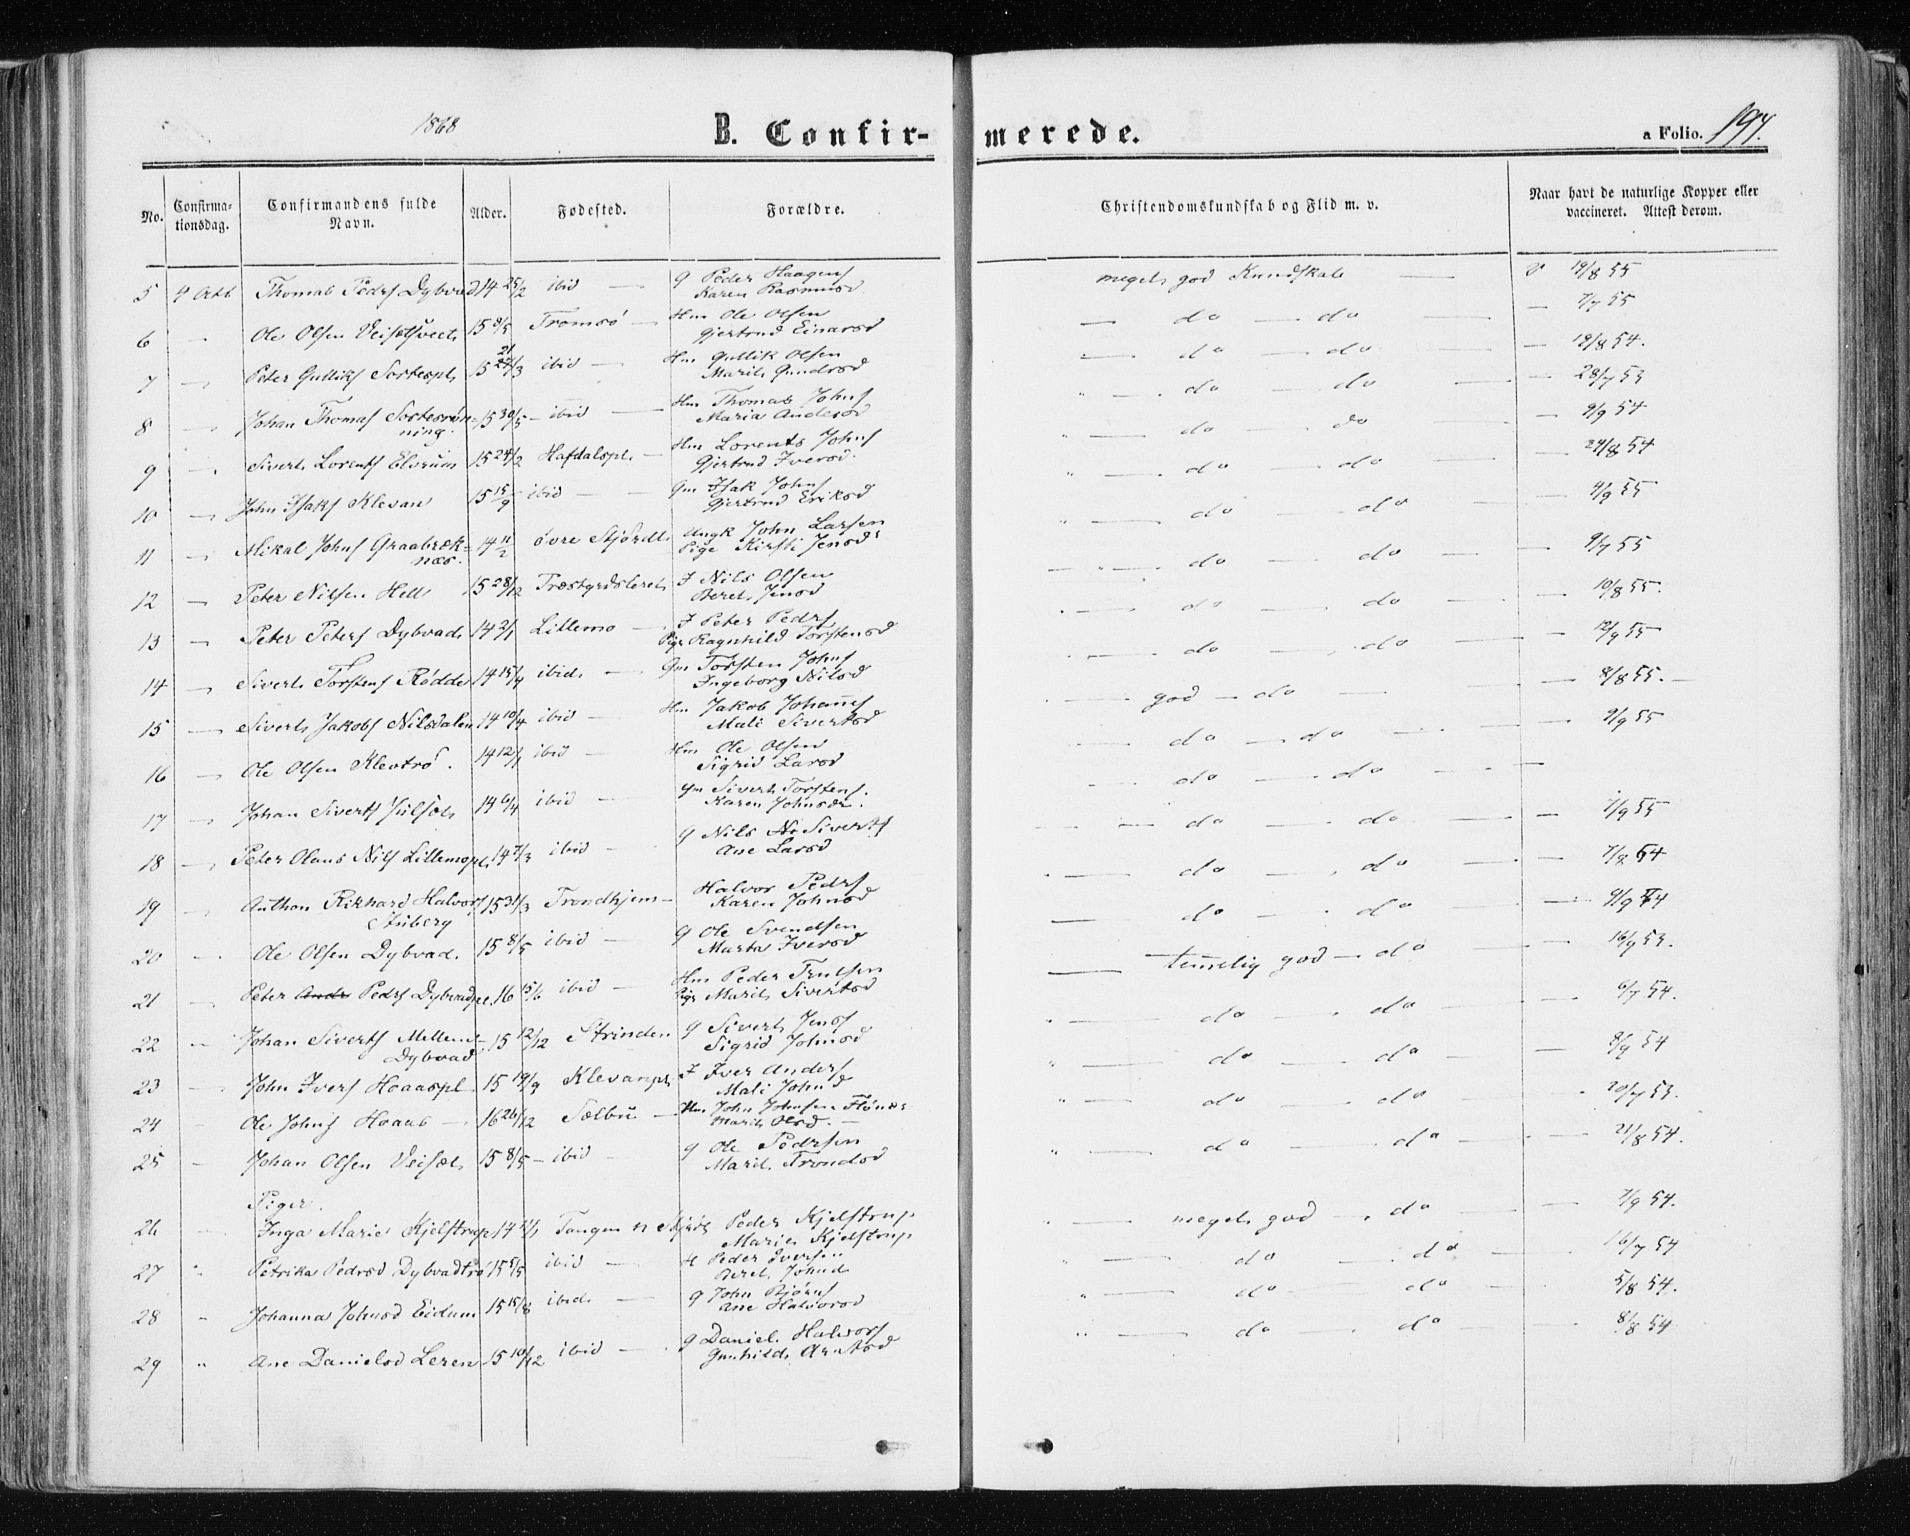 1868 B. Confirmerede. a Folio. 197.
No. Confirmationsdag. Confirmandens fulde Navn. Alder. Fødested. Forældre. Christendomskundskab og Flid m. v. Naar havt de naturlige Kopper eller vaccineret. Attest derom.
5 4 Octb Thomas Peders Dybvad 14 25/2 ibid — g Peder Haagens — meget god Kundskab — v 19/8 55
Karen Rasmusd
6 " Ole Olsen 15 9/5 Tromsö — Hm Ole Olsen — do — do — 7/7 55
Gjertrud Einarsd
7 — Peter Gulliks 15 21/3 ibid — Hm Gullik Olsen — do — do — 19/8 54.
Marit Gundersd
8 — Johan Thomas Sortesrönning. 15 30/5 — ibid — Hm Thomas Johns — do — do — 28/7 53
Maria Andersd
9 — Sivert Lorents Elvrum 15 24/2 Hafdalspl. — Hm Lorents Johns — do — do — 9/9 54
Gjertrud Iversd.
10 — John Isaks Klevan 15 15/9 — ibid — Gm Isak Johns — do — do — 24/8 54
Gjertrud Eriksd
11 — Mikal Johns Graabræknæs. 14 11/2 övre Stjördl. Ungk John Larsen — do — do — 4/9 55
Pige Kirsti Jensd
12 — Peter Nilsen Hell 15 28/12 I Nils Olsen — do — do — 9/7 55
Beret Jensd
13 — Peter Peters Dybvad 14 2/1 Lillemo — I Peter Peders — do — do — 10/8 55.
Pige Ragnhild Torstensd
14 — Sivert Torstens Rödde 14 15/4 ibid. — Gm Torsten Johns — do — do — 12/9 55
Ingeborg Nilsd
15 — Sivert Jakobs Nilsdalen 14 10/4 ibid — Hm Jakob Johans — god — do — 8/8 55. —
Mali Sivertsd
16 — Ole Olsen Klevtrö. 14 12/1 ibid — Hm Ole Olsen — do — do — 9/9 55
Sigrid Larsd
17 — Johan Siverts 14 6/4 ibid — Gm Sivert Torstens. — do — do —
Karen Johnsd.
18 — Peter Olaus Nils Lillemopl. 14 7/3 ibid — g Nils Siverts — do — do — 1/9 55
Ane Larsd
19 — Anthon Rikhard Halvors Stuberg 15 31/3 Trondhjem — Halvor Peders — do — do — 7/8 54
Karen Johnsd
20 " Ole Olsen Dybvad. 15 8/5 ibid — g Ole Svendsen — do — do — 9/9 54
Marta Iversd
21 — Peter Peders Dybvadpl. 16 15/6 ibid — Hm Peder Trulsen — temelig god — do — 16/9 53.
Pige Marit Sivertsd
22 " Johan Siverts Mellem-Dybvad 15 12/12 Strinden g Sivert Jens — do — do — 6/7 54.
Sigrid Johnsd
23 — John Ivers Hoaaspl 15 19/9 Klevanpl I Iver Anders — do — do — 8/9 54
Mali Johnd
24 — Ole Johns Hoaas — 16 26/12 Sælbu — Hm John Johnsen Flönes — do — do — 20/7 53.
Marit Olsd. —
25 — Johan Olsen 15 8/5 — ibid — g Ole Pedersen — do — do — 21/8 54.
Marit Trondsd
Piger.
26 Inga Marie Kjelstrup 14 Tangen Peder Kjelstrup — meget god — do — 7/9 54.
Marie Kjelstrup
27 " Petrika Pedersd Dybvadtrö 15 5/5 ibid — H Peder Iversen — do — do — 16/7 54
Beret Johnd
28 " Johanna Johnsd Eidum 15 15/8 ibid. — g John Björns — do — do — 5/8 54.
Ane Halvorsd
29 " Ane Danielsd Leren 15 10/12 ibid — g Daniel Halvors — do — do — 8/8 54
Gunhild Arntsd